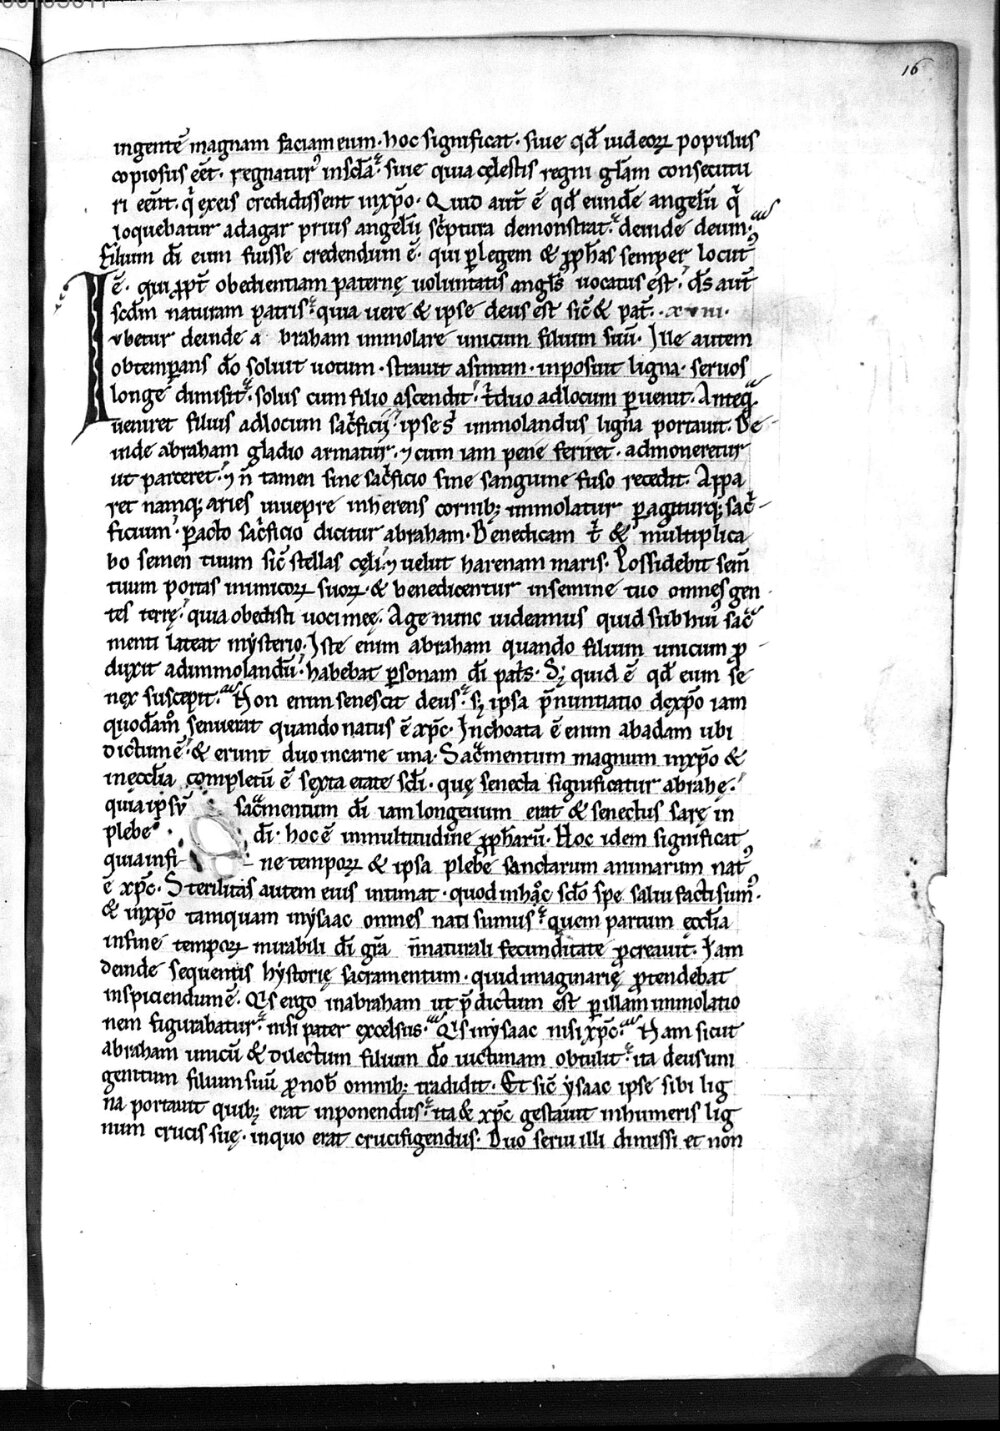 16
ingentē magnam faciam eum· hoc significat· siue qđ iudeoꝝ populus
copiosus eēt· regnaturꝰ in sc̄la· siue quia cęlestis regni głam consecutu
ri eēnt· q̄ ex eis credidissent in xp̄o· Quid aut̄ ē qđ eundē angelū q̄
loquebatur ad agar prius angelū sc̄ptura demonstrat· deinde deum·
Filium dī eum fuisse credendum ē· qui ꝑ legem & ꝓphas semper locutꝰ
ē· qui ꝓpt̄ obedientiam paternę uoluntatis angls̄ uocatus est· ds̄ aut̄
scdm̄ naturam patris· quia uere & ipse deus est sic̄ & pat̄· xviii·
Iubetur deinde abraham immolare unicum filium suū· Ille autem
obtemꝑans dō soluit uotum· strauit asinam· inposuit ligna· seruos
longe dimisit· solus cum filio ascendit· t̄duo ad locum ꝑuenit· Anteq̄
ueniret filius ad locum sac̄ficii· ipse s̄ immolandus ligna portauit· De
inde abraham gladio armatur· ⁊ cum iam pene feriret· admoneretur
ut parceret· ⁊ n̄ tamen sine sac̄ficio sine sanguine fuso recedit· Appa
ret namq; aries in uepre inherens cornib; immolatur ꝑagiturq; sac̄
ficium· ꝑacto sac̄ficio dicitur abraham· Benedicam t̄ & multiplica
bo semen tuum sic̄ stellas cęli· ⁊ uelut harenam maris· Possidebit sem̄
tuum portas inimicoꝝ suoꝝ· & benedicentur in semine tuo omnes gen
tes terrę· quia obedisti uoci meę· Age nunc uideamus quid sub huiꝰ sac̄
menti lateat mysterio· Iste enim abraham quando filium unicum ꝑ
duxit ad immolandū· habebat ꝑsonam dī pat̄s· S; quid ē qđ eum se
nex suscepit· Non enim senescit deus· s; ipsa p̄nuntiatio de xp̄o iam
quodam̊ senuerat quando natus ē xp̄c· Inchoata ē enim ab adam ubi
dictum ē· & erunt duo in carne una· Sac̄mentum magnum in xp̄o &
in ęcclīa completū ē sexta etate scłi· quę senecta significatur abrahę·
quia ipsū sac̄mentum dī iam longeuum erat & senectus sarę in
plebe dī· hoc ē in multitudine ꝓphaꝝ· Hoc idem significat
quia in fine tempoꝝ & ipsa plebe sanctarum animarum natꝰ
ē xp̄c· Sterilitas autem eius intimat· quod in hac̊ sclo spe salui facti sumꝰ·
& in xp̄o tamquam in ysaac omnes nati sumus· quem partum ęcclīa
in fine tempoꝝ mirabili dī gr̄a n̄ naturali fecunditate ꝓcreauit· Iam
deinde sequentis hystorię sacramentum· quid imaginarię ꝓtendebat
inspiciendum ē· Qs̄ ergo in abraham ut p̄dictum est ꝑ illam immolatio
nem figurabatur· nisi pater excelsus· Qs̄ in ysaac nisi xp̄c· Nam sicut
abraham unicū & dilectum filium dō uictimam obtulit· ita deus uni
genitum filium suū ꝓ nob̄ omnib; tradidit· Et sic̄ ysaac ipse sibi lig
na portauit quib; erat inponendus· ita & xp̄c gestauit in humeris lig
num crucis suę· in quo erat crucifigendus· Duo serui illi dimissi et non